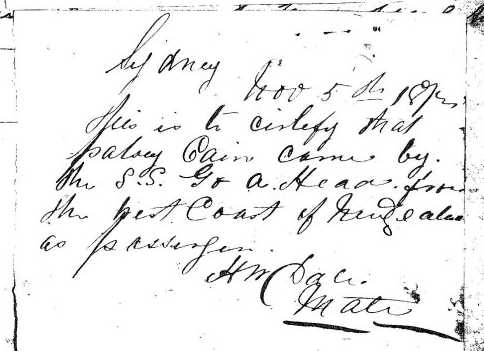 Sydney
Nov 5th 18
This is to certify that
patsey Cain came by
the S.S. Go a Head from
the west Coast of
as passenger.
H W
Mate